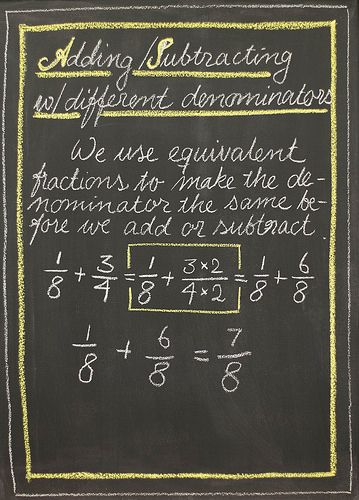 Adding/Subtracting
w/different denominators
We use equivalent
fractions to make the de-
nominator the same be-
fore we add or subtract.
1/8 + 3/4 = 1/8 + 3×2/4×2 = 1/8 + 6/8
1/8 + 6/8 = 7/8